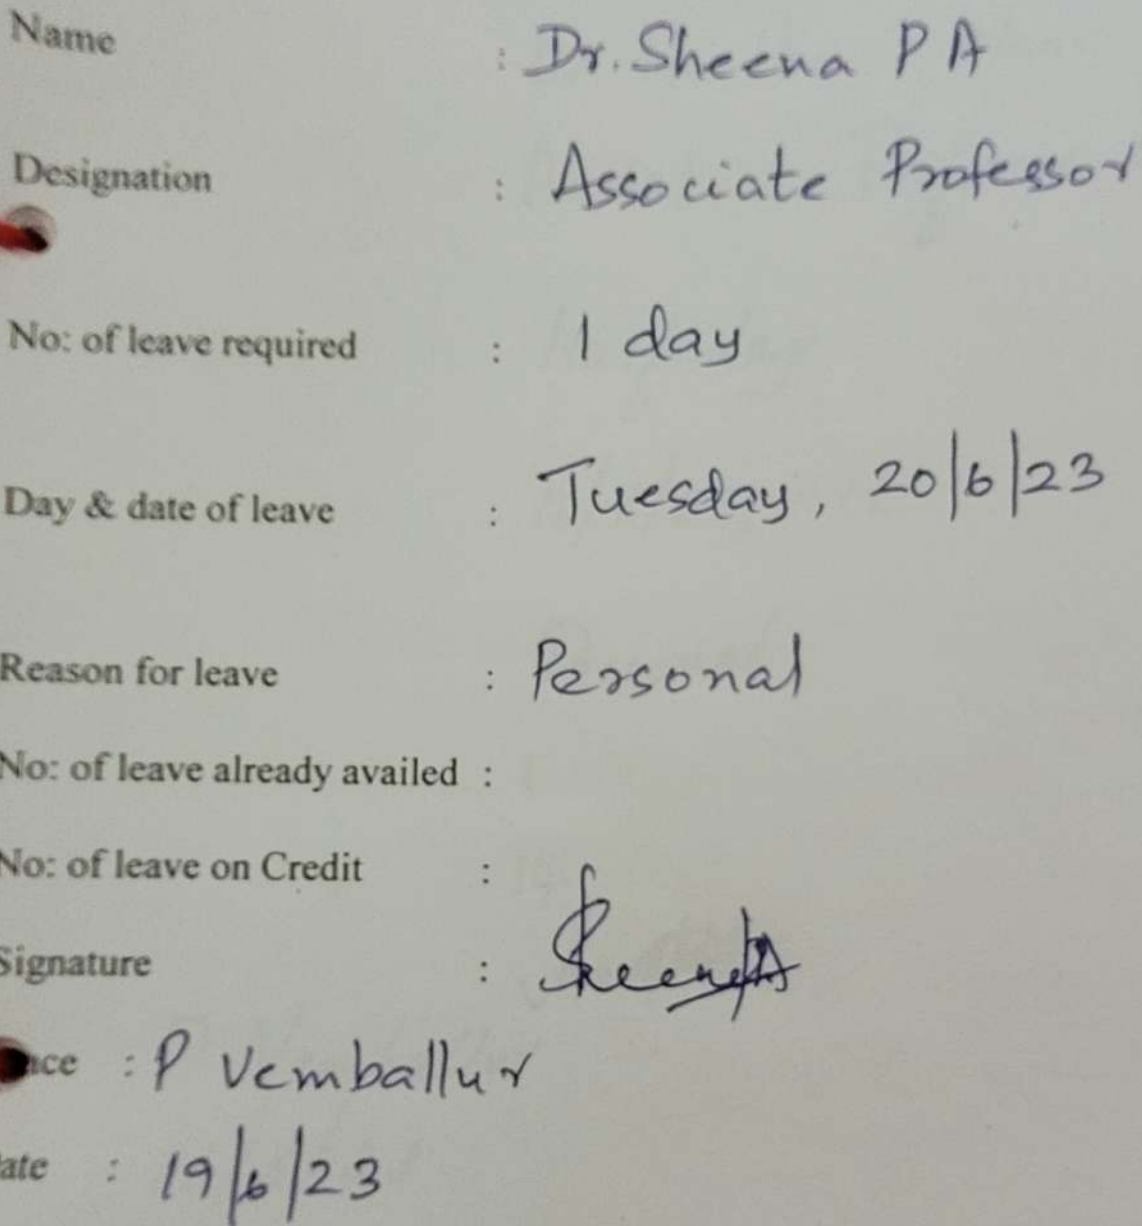 Name : Dr. Sheena P A
Designation : Associate Professor
No: of leave required : 1 day
Day & date of leave : Tuesday, 20/6/23
Reason for leave : Personal
No: of leave already availed :
No: of leave on Credit :
Signature : Sheena PA
ace : P Vemballur
ate : 19/6/23